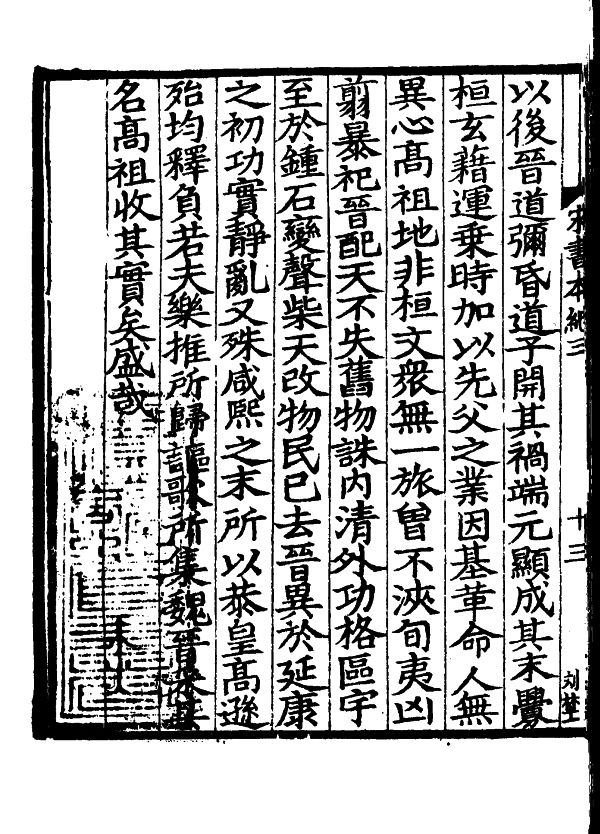 以後晉道彌昏道子開其禍端元顯成其末釁
桓玄藉運乗時加以先父之業因基革命人無
異心髙祖地非桓文衆無一旅曾不浹旬夷凶
翦暴祀晉配天不失舊物誅內清外功格區宇
至於鍾石變聲柴天改物民已去晉異於延康
之初功實靜亂又殊咸熙之末所以恭皇高遜
殆均釋負若夫樂推所歸謳歌所集魏晉采其
名髙祖收其實矣盛哉
宋書本紀三
十三